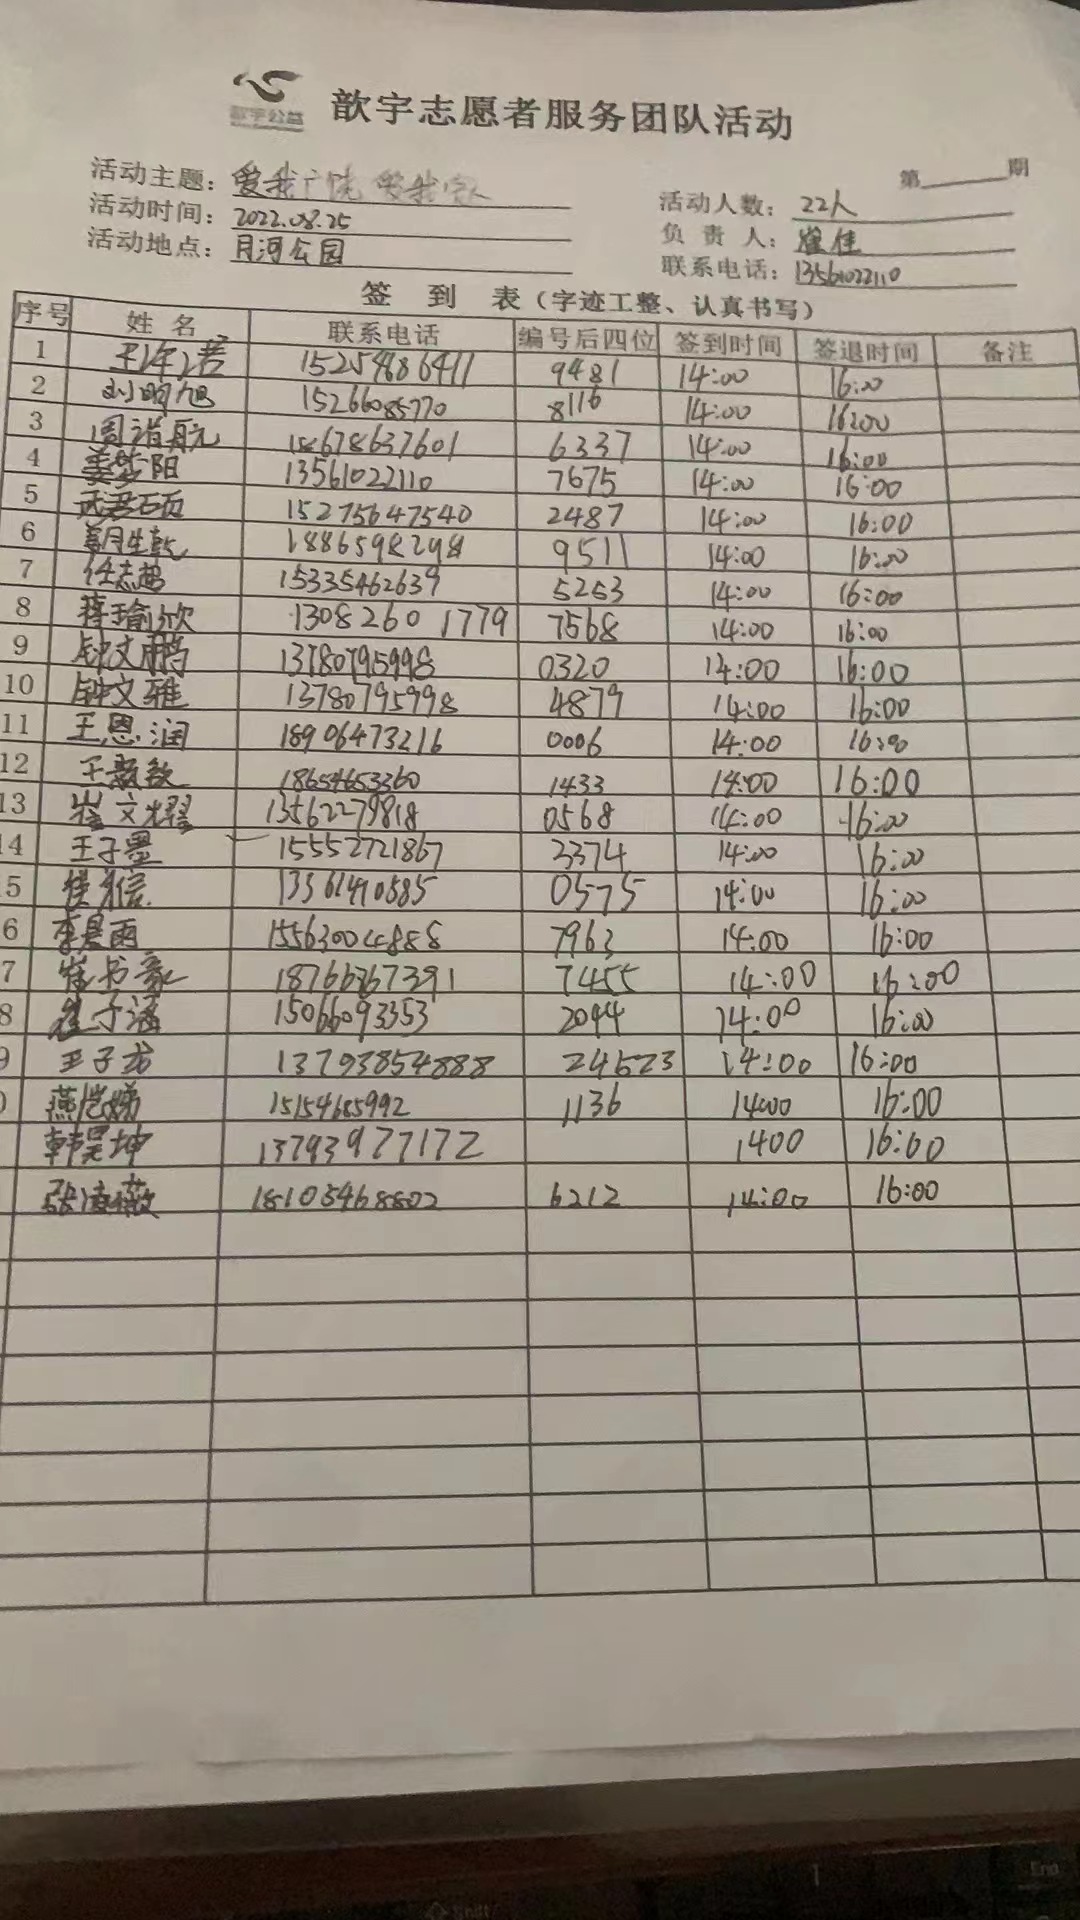 歆宇公益
歆宇志愿者服务团队活动
第 期
活动主题：爱我广饶 爱我家人
活动人数：22人
活动时间：2022.08.25
负责人：崔佳
活动地点：月河公园
联系电话：13561022110
签到表（字迹工整、认真书写）
序号 姓名 联系电话 编号后四位 签到时间 签退时间 备注
1 15254886411 9481 14:00 16:00
2 刘明旭 15266085770 8116 14:00 16:00
3 周诣航 18678637601 6337 14:00 16:00
4 姜梦阳 13561022110 7675 14:00 16:00
5 15275647540 2487 14:00 16:00
6 18865982984 9511 14:00 16:00
7 任志超 15335462639 5253 14:00 16:00
8 蒋瑜欣 13082601779 7568 14:00 16:00
9 钟文鹏 13780795998 0320 14:00 16:00
10 钟文雅 13780795998 4879 14:00 16:00
11 王恩润 18906473216 0006 14:00 16:00
12 18654653360 1433 14:00 16:00
13 崔文耀 13562279818 0568 14:00 16:00
14 王子墨 15552721867 3374 14:00 16:00
5 13361490585 0575 14:00 16:00
6 李晨雨 15563004888 7963 14:00 16:00
7 崔书豪 18766367391 7455 14:00 16:00
8 崔子涵 15066093353 2044 14:00 16:00
9 王子龙 137938854888 24523 14:00 16:00
0 燕恺娣 15154685992 1136 1400 16:00
韩昊坤 13793977172 1400 16:00
张凌薇 18105468802 6212 14:00 16:00
End
Shift